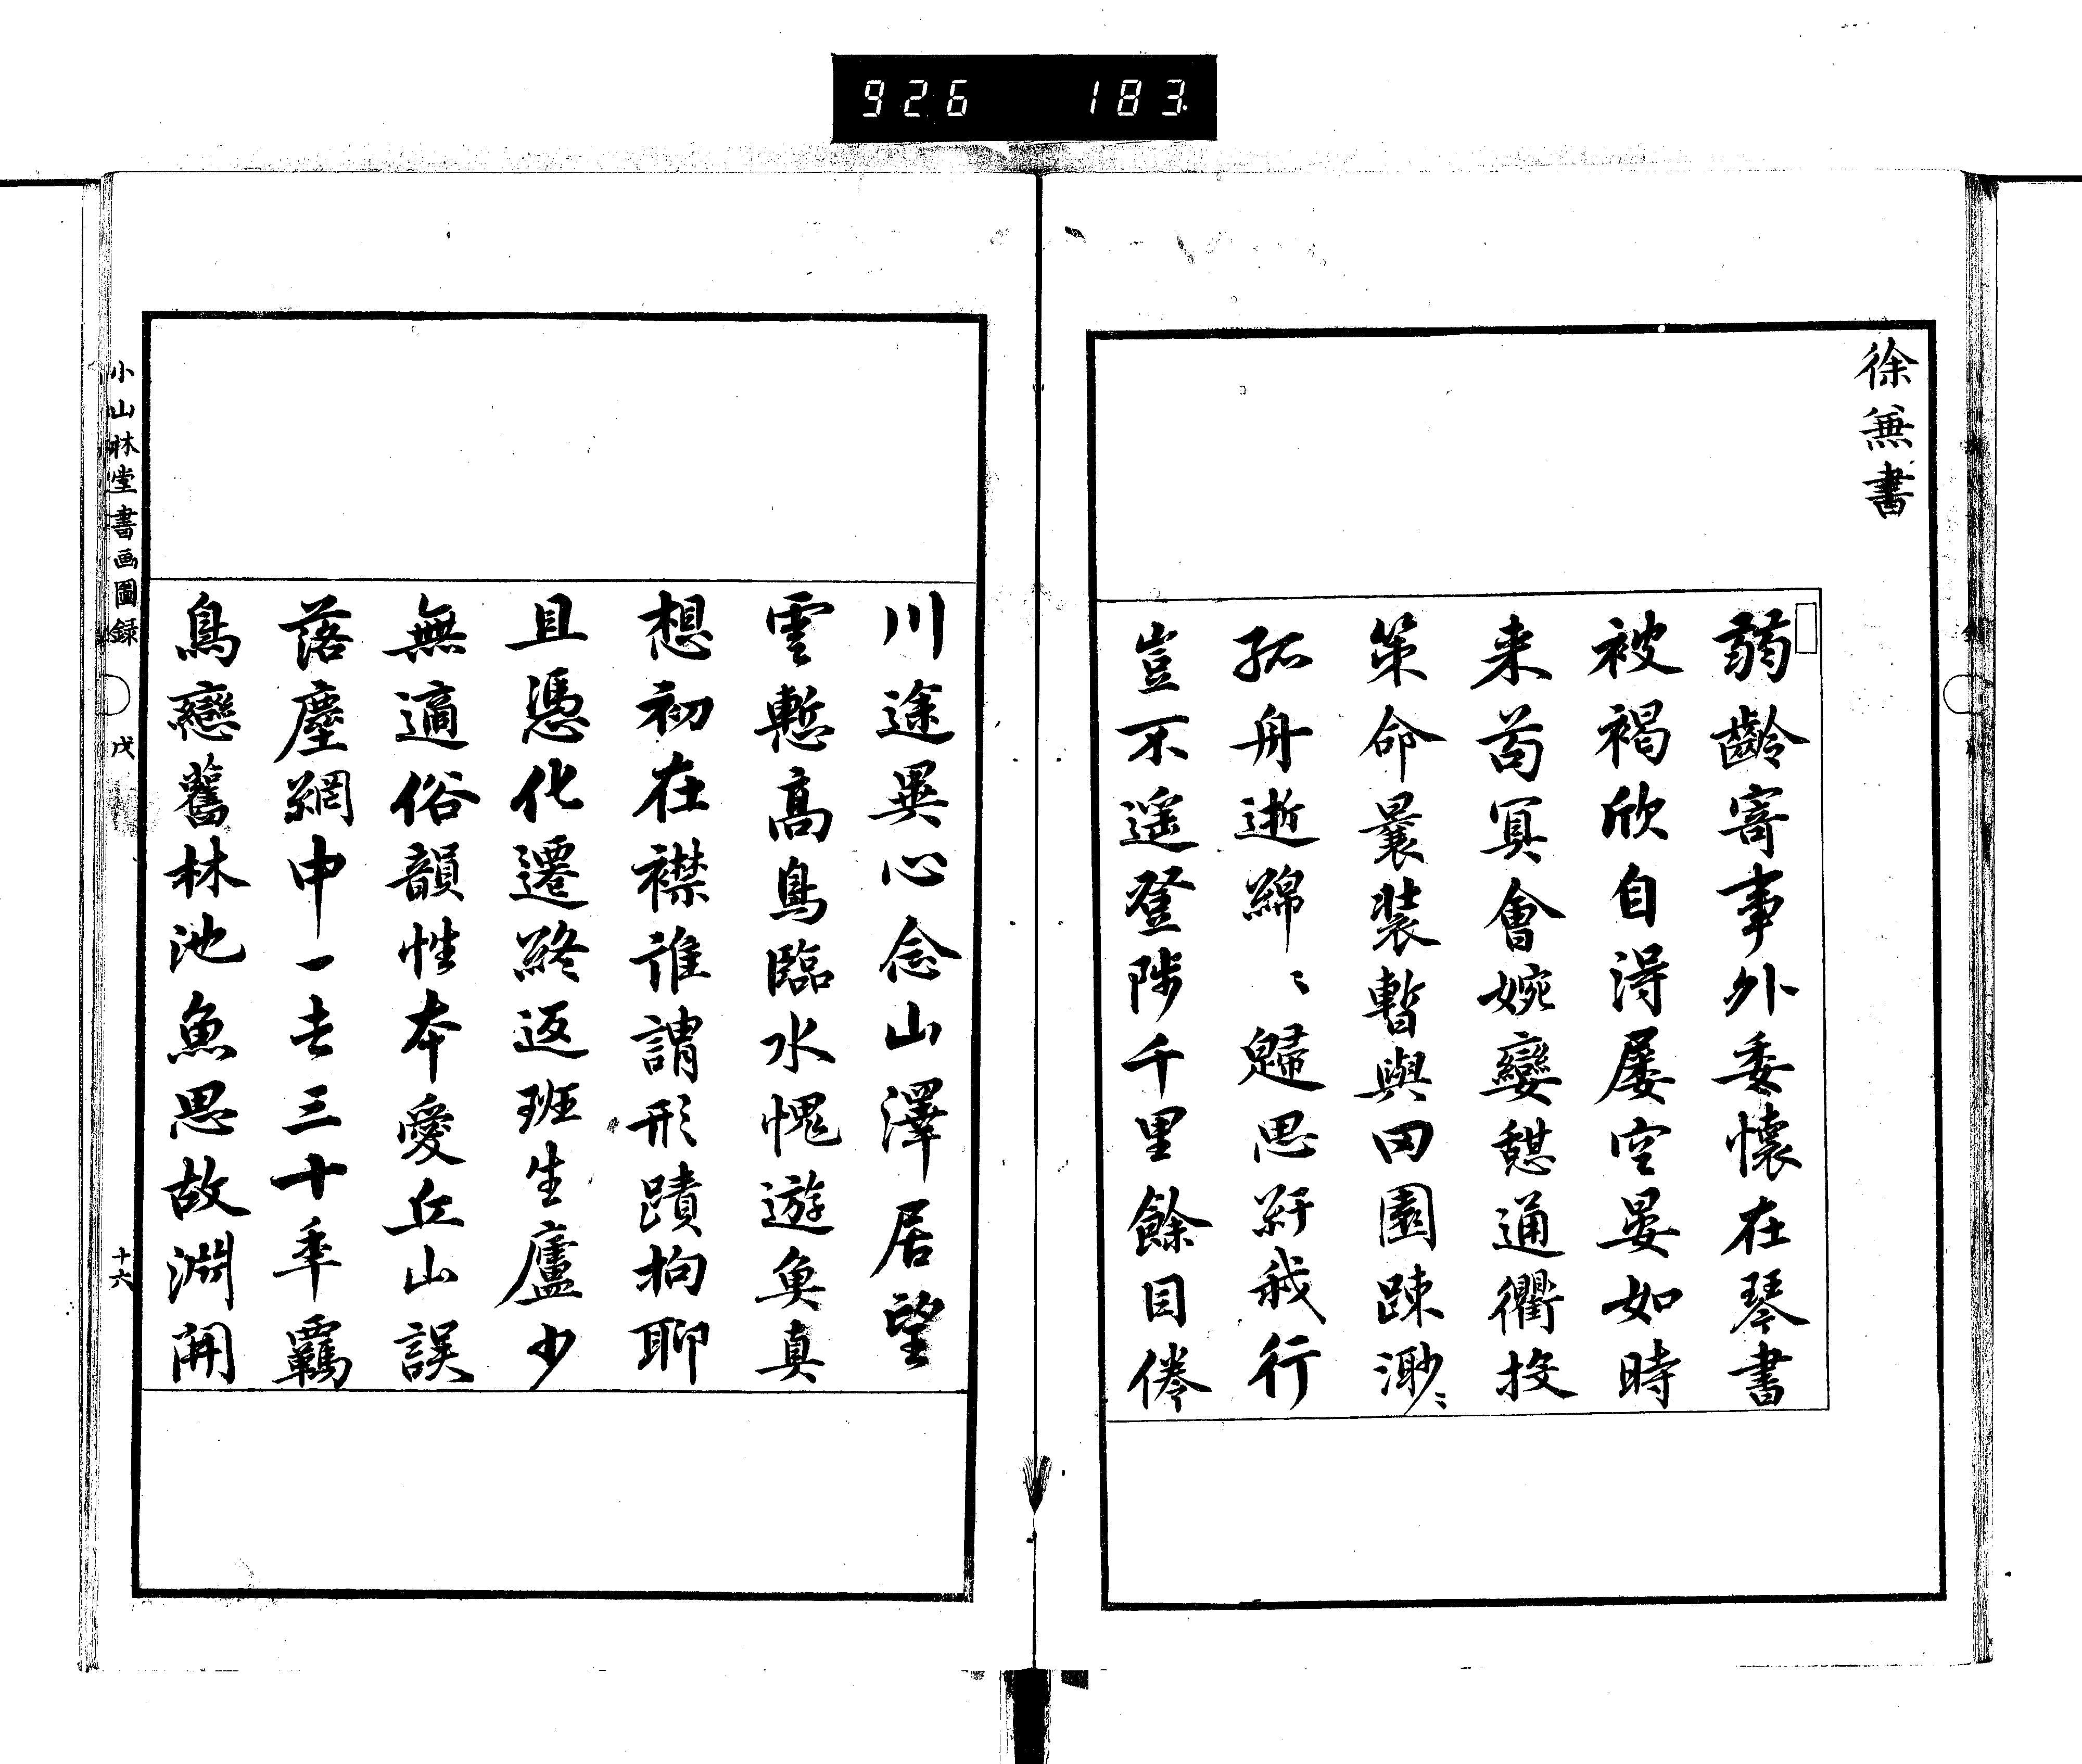 926 183
徐無書
弱齡寄事外委懷在琴書
被褐欣自得屡空晏如時
来苟冥會婉孌憩通衢投
策命曩装暫與田園踈渺〻
孤舟逝綿〻歸思紆我行
豈不遥登陟千里餘目倦
川途異心念山澤居望
雲慙高鳥臨水愧遊魚真
想初在襟誰謂形蹟拘聊
且憑化遷終返班生廬少
無適俗韻性本愛丘山誤
落塵網中一去三十年羈
鳥戀舊林池魚思故淵開
小山林堂書画圖録 戊 十六